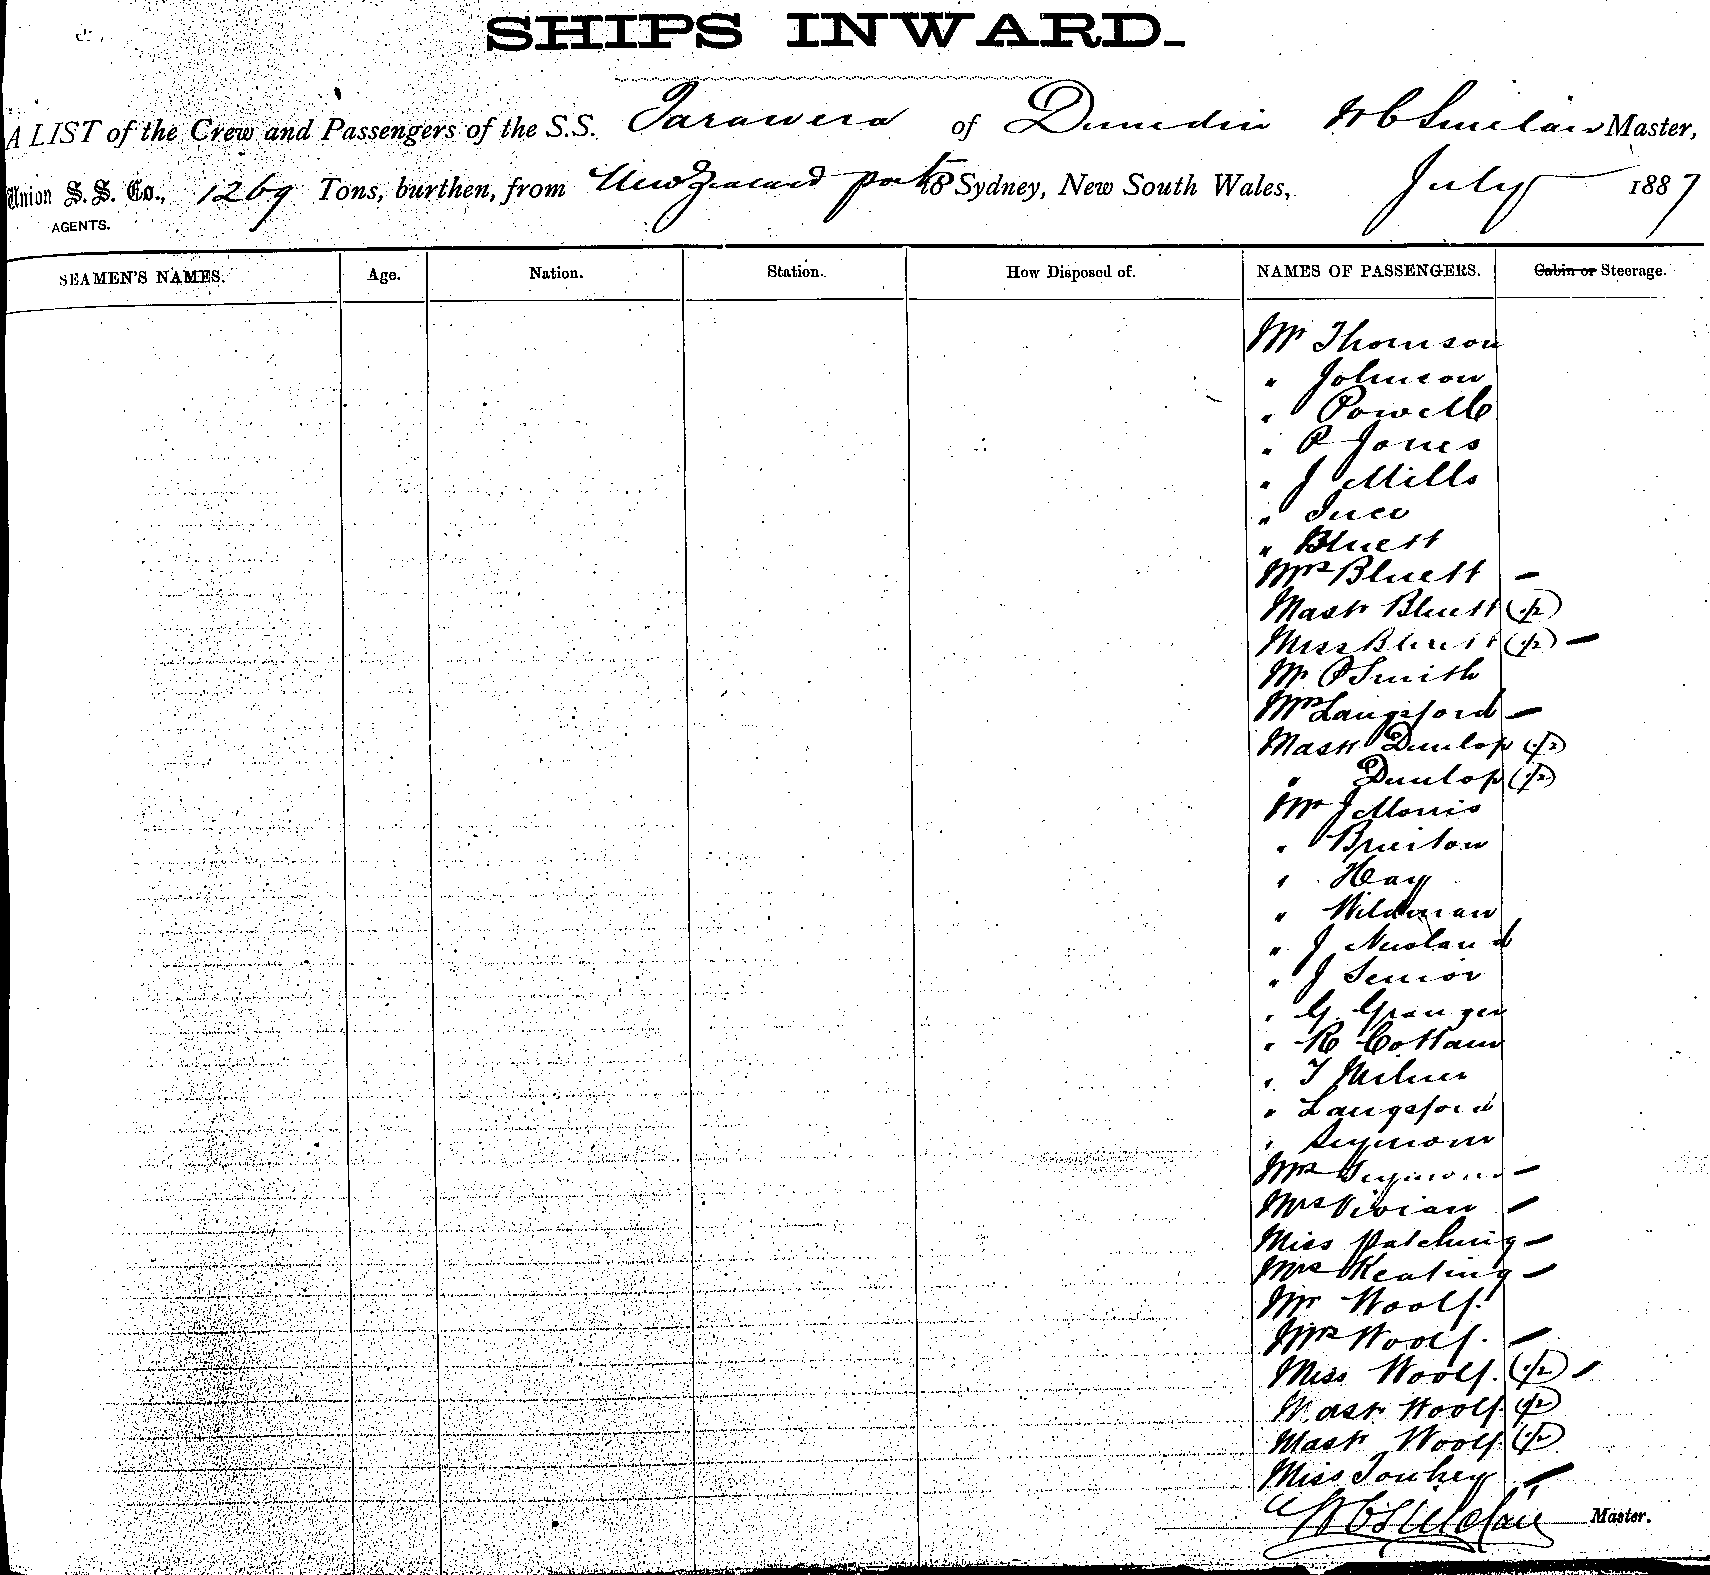 SHIPS INWARD.
A LIST of the Crew and Passengers of the S.S. Tarawera of Dunedin W C Sinclair Master,
Union S. S. Co., 1269 Tons, burthen, from New Zealand ports to Sydney, New South Wales, July 1887
AGENTS.
SEAMEN'S NAMES. Age. Nation. Station. How Disposed of. NAMES OF PASSENGERS. Cabin or Steerage.
Mr Thomson
" Johnson
" Powell
" P Jones
" J Mills
"
" Bluett
Mrs Bluett –
Mastr Bluett (1/2)
Miss Bluett (1/2) –
Mr P Smith
Mrs Langsford –
Mastr Dunlop (1/2)
" Dunlop (1/2)
Mr J Morris
"
" Hay
" Wildman
" J
" J Senior
" G Granger
" R Cottam
" T Milner
" Langsford
" Seymour
Mrs Seymour –
Mrs Vivian –
Miss Patching –
Mrs Keating –
Mr Woolf.
Mrs Woolf. –
Miss Woolf. (1/2) –
Mastr Woolf. (1/2)
Mastr Woolf. (1/2)
Miss –
W C Sinclair Master.